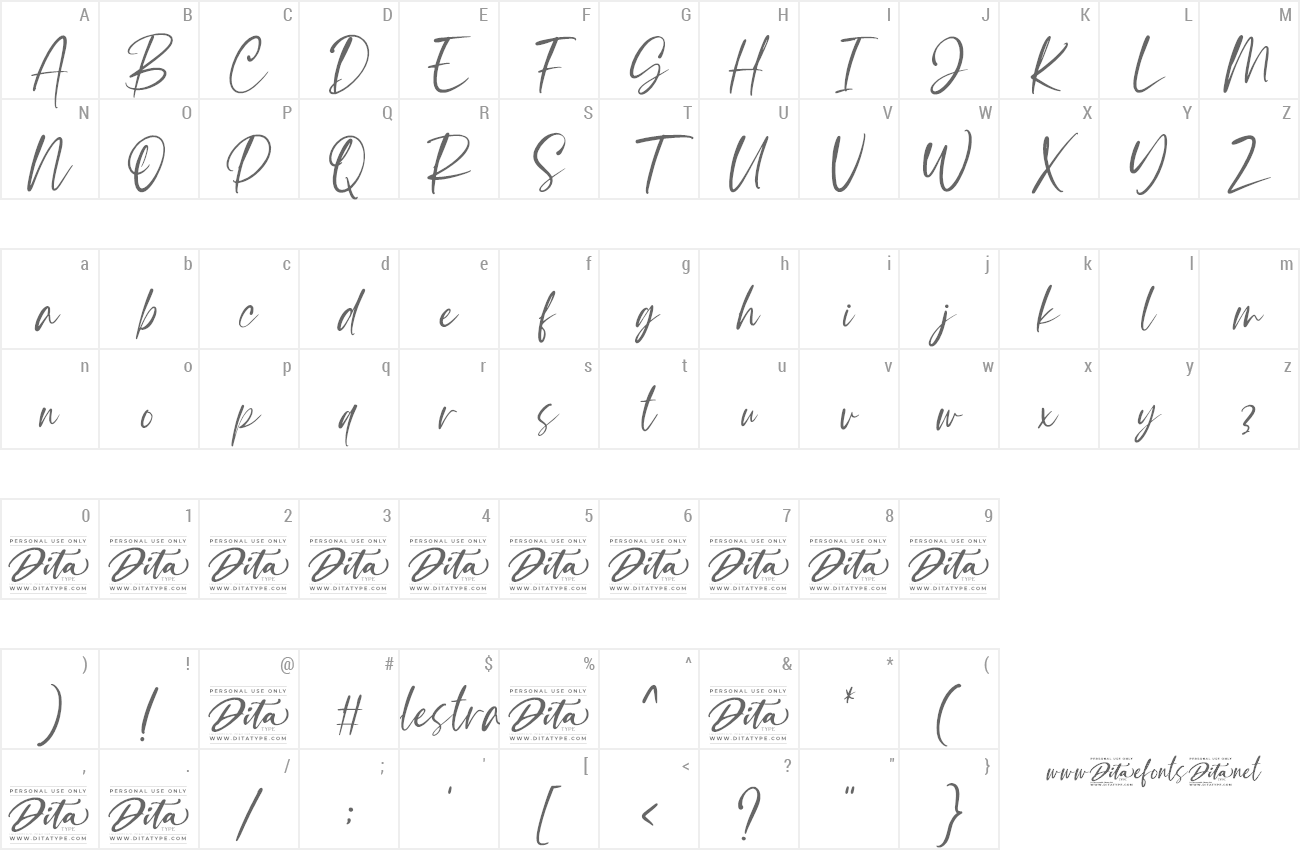 A B C D E F G H I J K L M
A B C D E F G H I J K L M
N O P Q R S T U V W X Y Z
N O P Q R S T U V W X Y Z
a b c d e f g h i j k l m
a b c d e f g h i j k l m
n o p q r s t u v w x y z
n o p q r s t u v w x y z
0 1 2 3 4 5 6 7 8 9
PERSONAL USE ONLY PERSONAL USE ONLY PERSONAL USE ONLY PERSONAL USE ONLY PERSONAL USE ONLY PERSONAL USE ONLY PERSONAL USE ONLY PERSONAL USE ONLY PERSONAL USE ONLY PERSONAL USE ONLY
Dita Dita Dita Dita Dita Dita Dita Dita Dita Dita
TYPE TYPE TYPE TYPE TYPE TYPE TYPE TYPE TYPE TYPE
WWW.DITATYPE.COM WWW.DITATYPE.COM WWW.DITATYPE.COM WWW.DITATYPE.COM WWW.DITATYPE.COM WWW.DITATYPE.COM WWW.DITATYPE.COM WWW.DITATYPE.COM WWW.DITATYPE.COM WWW.DITATYPE.COM
) ! @ # $ % ^ & * (
PERSONAL USE ONLY PERSONAL USE ONLY PERSONAL USE ONLY
) ! Dita # lestra Dita ^ Dita * (
TYPE TYPE TYPE
WWW.DITATYPE.COM WWW.DITATYPE.COM WWW.DITATYPE.COM
, . / ; ' [ < ? " }
PERSONAL USE ONLY PERSONAL USE ONLY
Dita Dita / ; ' [ < ? " }
TYPE TYPE
WWW.DITATYPE.COM WWW.DITATYPE.COM
www Dita efonts Dita net